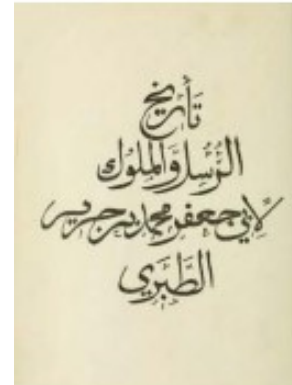 تأريخ
الرسل والملوك
لابي جعفر محمد بن جرير
الطبري